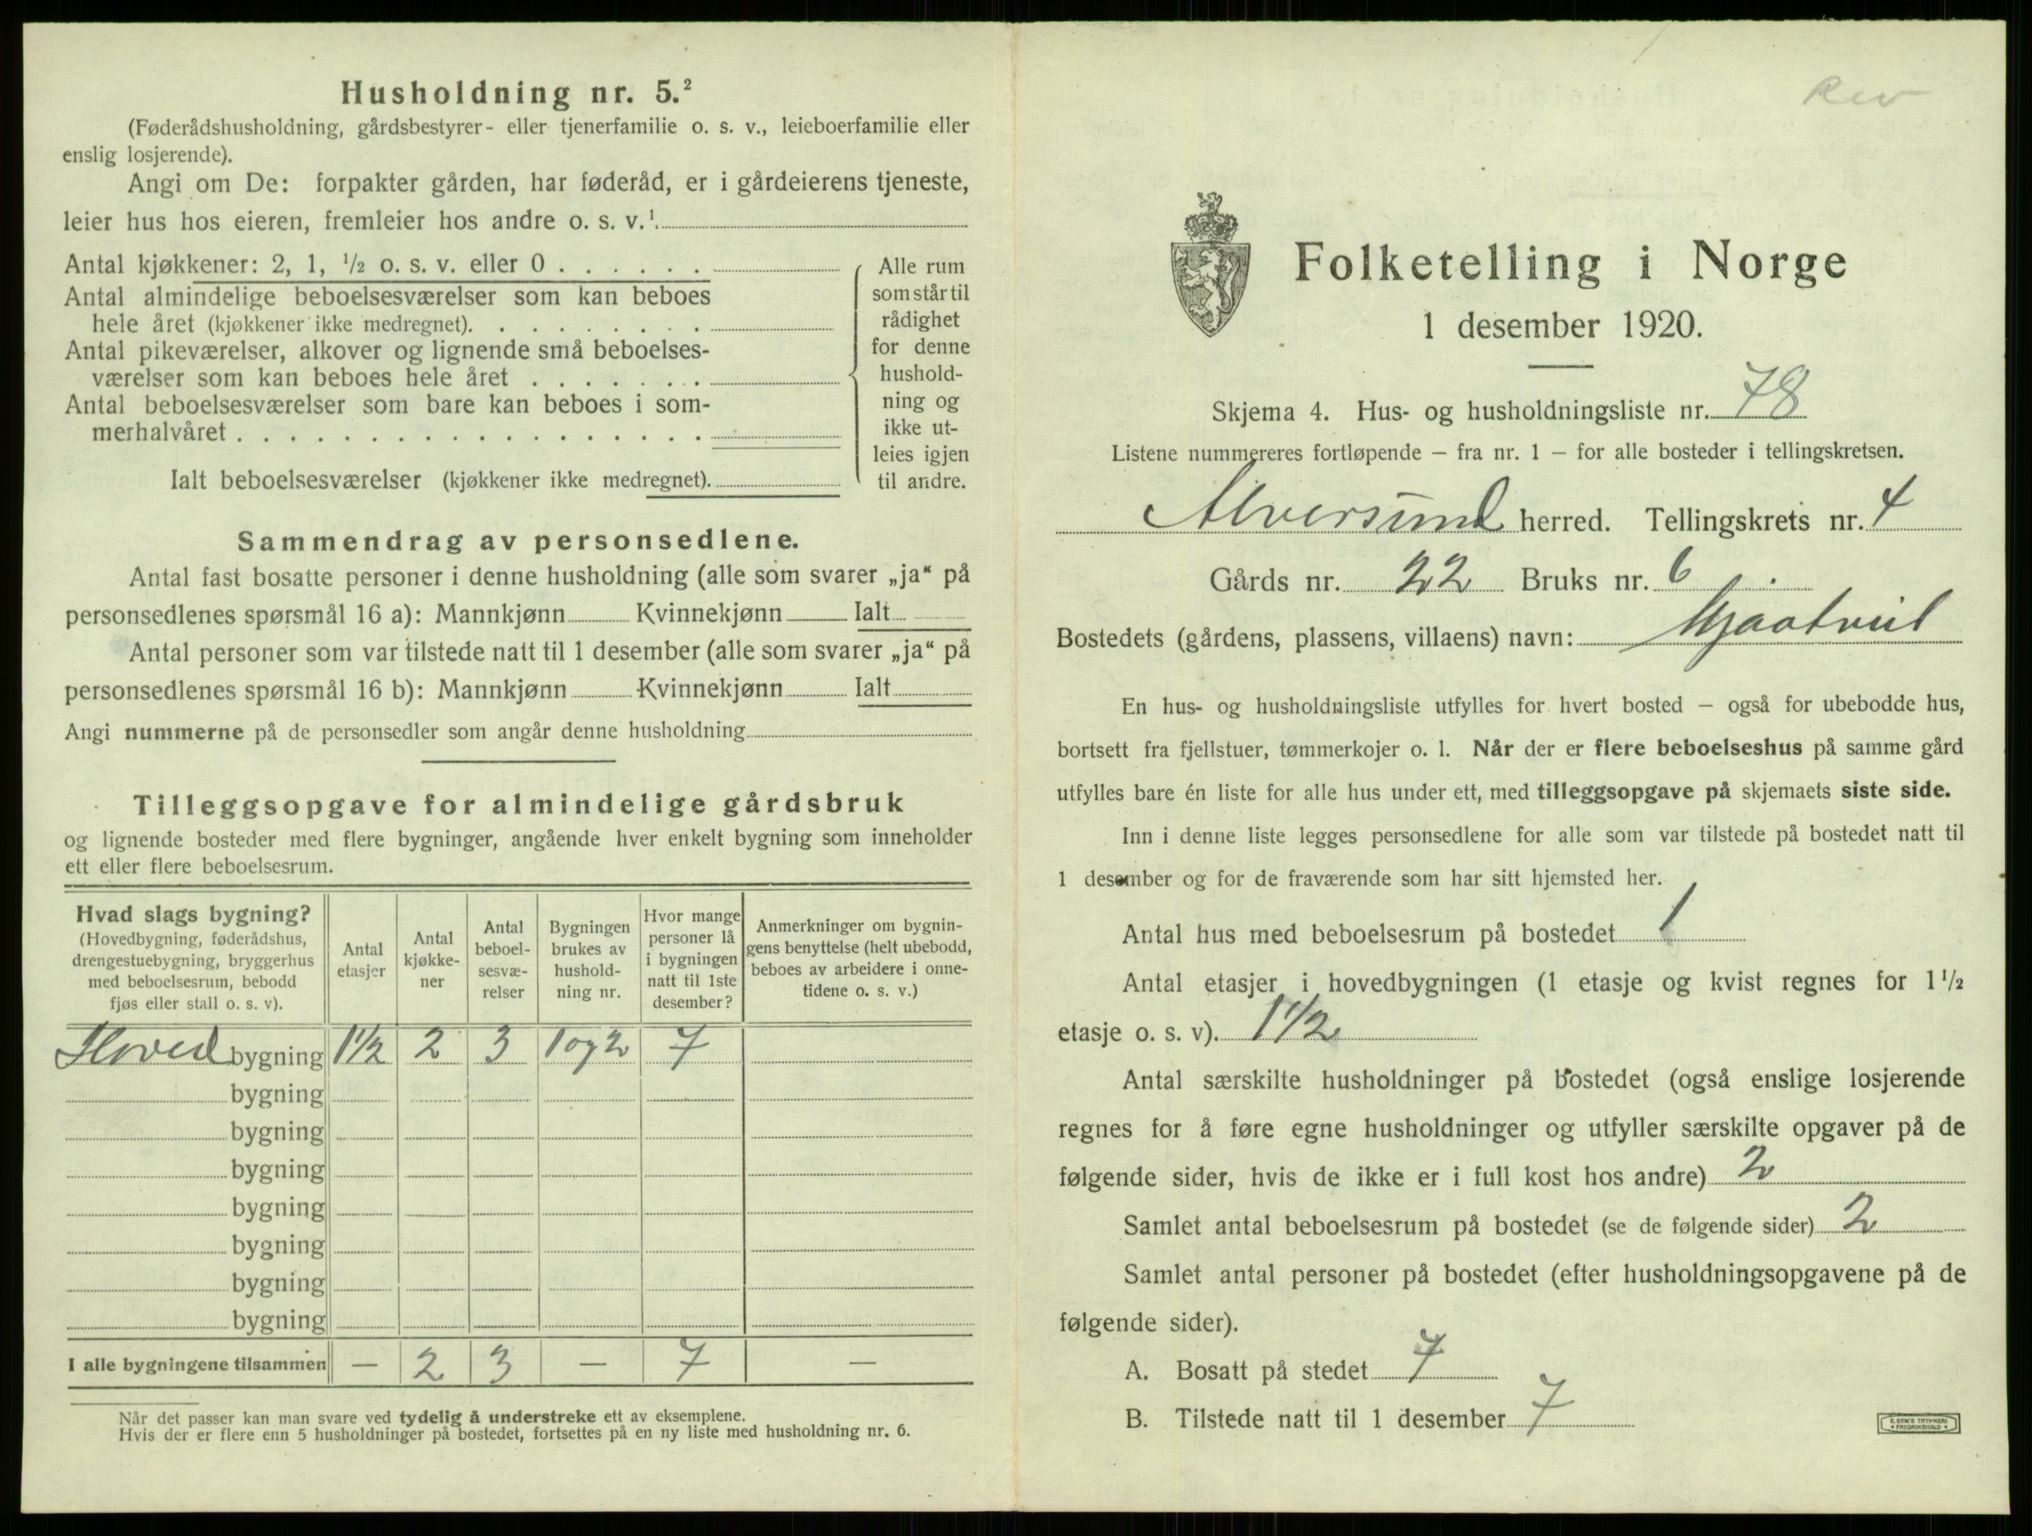 Husholdning nr. 5.²
(Føderådshusholdning, gårdsbestyrer- eller tjenerfamilie o. s. v., leieboerfamilie eller
enslig losjerende).
Angi om De: forpakter gården, har føderåd, er i gårdeierens tjeneste,
leier hus hos eieren, fremleier hos andre o. s. v.¹
Antal kjøkkener: 2, 1, ½ o. s. v. eller 0 . . . . . .
Antal almindelige beboelsesværelser som kan beboes
hele året (kjøkkener ikke medregnet). . . . . . . . .
Antal pikeværelser, alkover og lignende små beboelses-
værelser som kan beboes hele året . . . . . . .
Antal beboelsesværelser som bare kan beboes i som-
merhalvåret . . . . . . . . . . . . . . . . . .
Ialt beboelsesværelser (kjøkkener ikke medregnet).
Alle rum
som står til
rådighet
for denne
hushold-
ning og
ikke ut-
leies igjen
til andre.
Sammendrag av personsedlene.
Antal fast bosatte personer i denne husholdning (alle som svarer „ja“ på
personsedlenes spørsmål 16 a): Mannkjønn Kvinnekjønn Ialt
Antal personer som var tilstede natt til 1 desember (alle som svarer „ja“ på
personsedlenes spørsmål 16 b): Mannkjønn Kvinnekjønn Ialt
Angi nummerne på de personsedler som angår denne husholdning
Tilleggsopgave for almindelige gårdsbruk
og lignende bosteder med flere bygninger, angående hver enkelt bygning som inneholder
ett eller flere beboelsesrum.
Hvad slags bygning?
(Hovedbygning, føderådshus,
drengestuebygning, bryggerhus
med beboelsesrum, bebodd
fjøs eller stall o. s. v).
Antal
etasjer
Antal
kjøkke-
ner
Antal
beboel-
sesvæ-
relser
Bygningen
brukes av
hushold-
ning nr.
Hvor mange
personer lå
i bygningen
natt til 1ste
desember?
Anmerkninger om bygnin-
gens benyttelse (helt ubebodd,
beboes av arbeidere i onne-
tidene o. s. v.)
Hoved bygning 1 1/2 2 3 1 og 2 7
bygning
bygning
bygning
bygning
bygning
bygning
bygning
I alle bygningene tilsammen — 2 3 — 7 —
Når det passer kan man svare ved tydelig å understreke ett av eksemplene.
Hvis der er flere enn 5 husholdninger på bostedet, fortsettes på en ny liste med husholdning nr. 6.
Rev
Folketelling i Norge
1 desember 1920.
Skjema 4. Hus- og husholdningsliste nr. 78
Listene nummereres fortløpende — fra nr. 1 — for alle bosteder i tellingskretsen.
Alversund herred. Tellingskrets nr. 4
Gårds nr. 22 Bruks nr. 6
Bostedets (gårdens, plassens, villaens) navn:
En hus- og husholdningsliste utfylles for hvert bosted — også for ubebodde hus,
bortsett fra fjellstuer, tømmerkojer o. l. Når der er flere beboelseshus på samme gård
utfylles bare én liste for alle hus under ett, med tilleggsopgave på skjemaets siste side.
Inn i denne liste legges personsedlene for alle som var tilstede på bostedet natt til
1 desember og for de fraværende som har sitt hjemsted her.
Antal hus med beboelsesrum på bostedet 1
Antal etasjer i hovedbygningen (1 etasje og kvist regnes for 1 ½
etasje o. s. v). 1 1/2
Antal særskilte husholdninger på bostedet (også enslige losjerende
regnes for å føre egne husholdninger og utfyller særskilte opgaver på de
følgende sider, hvis de ikke er i full kost hos andre) 2
Samlet antal beboelsesrum på bostedet (se de følgende sider) 2
Samlet antal personer på bostedet (efter husholdningsopgavene på de
følgende sider).
A. Bosatt på stedet 7
B. Tilstede natt til 1 desember 7
E. SEM'S TRYKKERI
FREDRIKSHALD